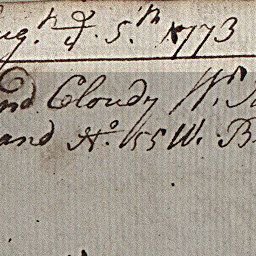 Aug.^st 5.^th 1773
nd Cloudy W.^r
and N.^o 155 W. B